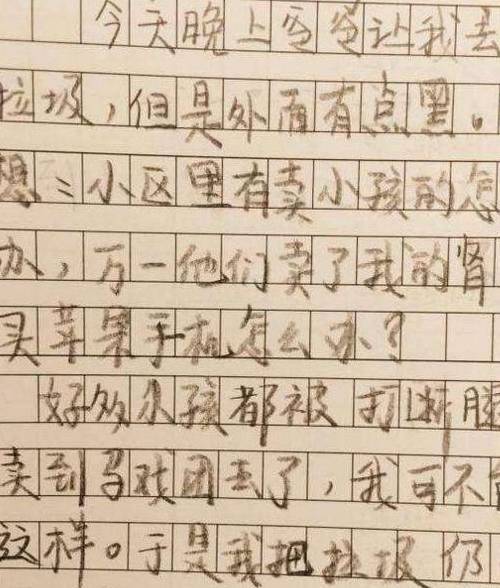 今天晚上爸爸让我去
垃圾，但是外面有点黑。
想：小区里有卖小孩的怎
办，万一他们卖了我的肾
买苹果手机怎么办？
好多小孩都被打断腿
卖到马戏团去了，我可不
这样。于是我把垃圾仍